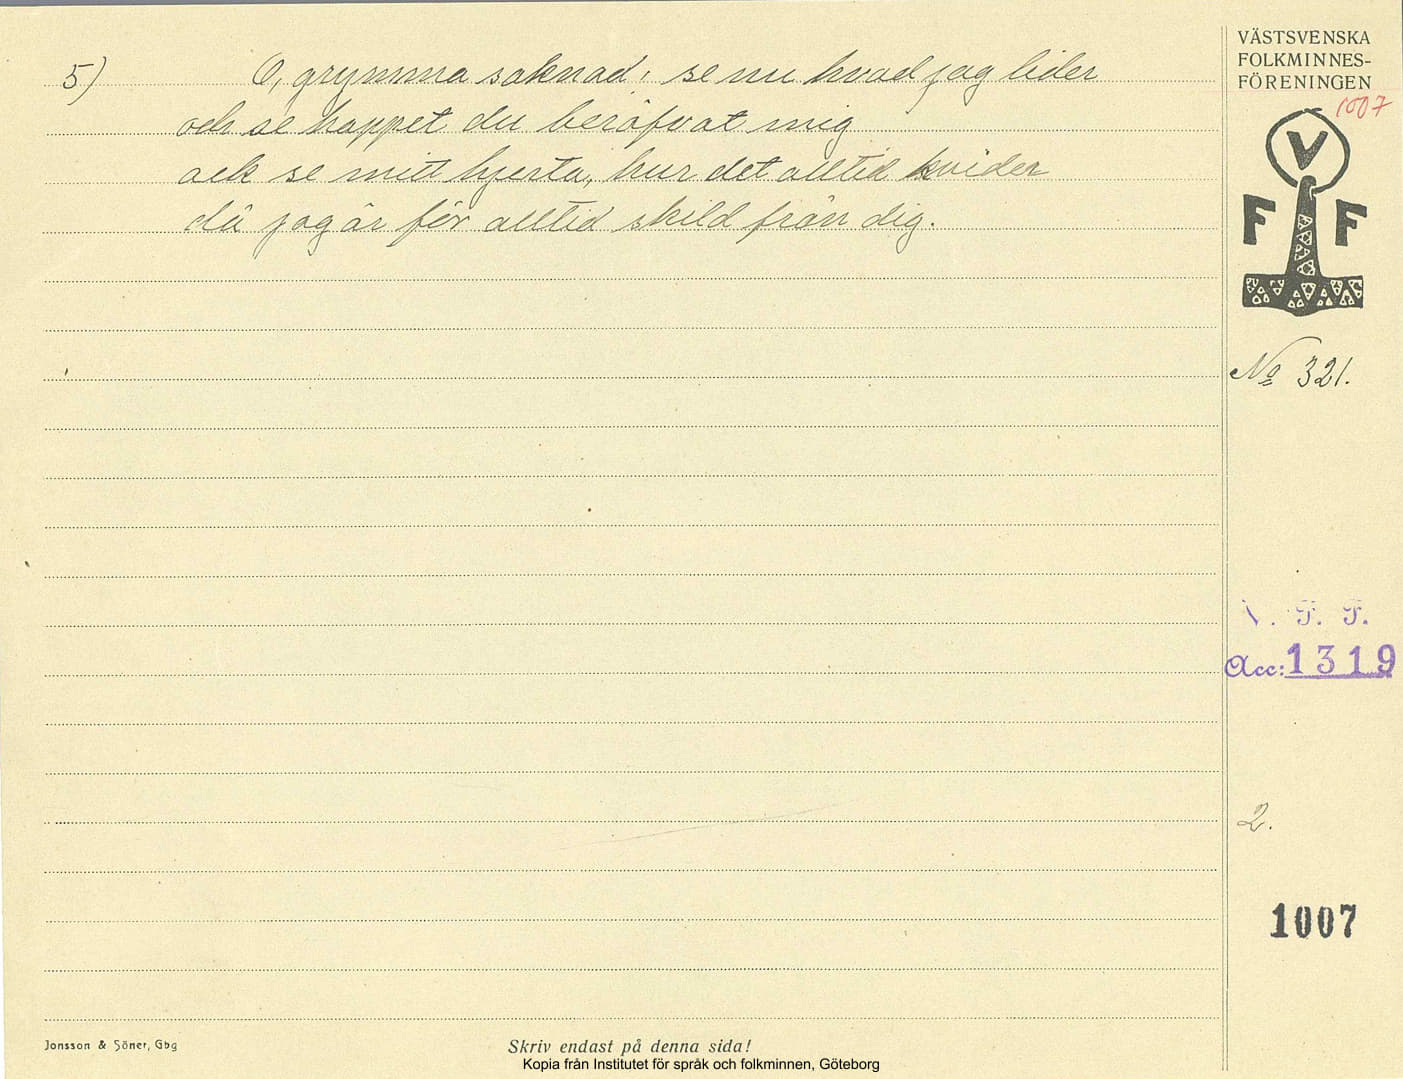 5) O, grymma saknad, se nu hvad jag lider
och se hoppet du beröfvat mig
ack se mitt hjerta, hur det alltid kvider
då jag är för alltid skild från dig.
VÄSTSVENSKA
FOLKMINNES-
FÖRENINGEN
1007
V
F F
No 321.
V. F. F.
Acc: 1319
2.
1007
Jonsson & Söner, Gbg
Skriv endast på denna sida!
Kopia från Institutet för språk och folkminnen, Göteborg